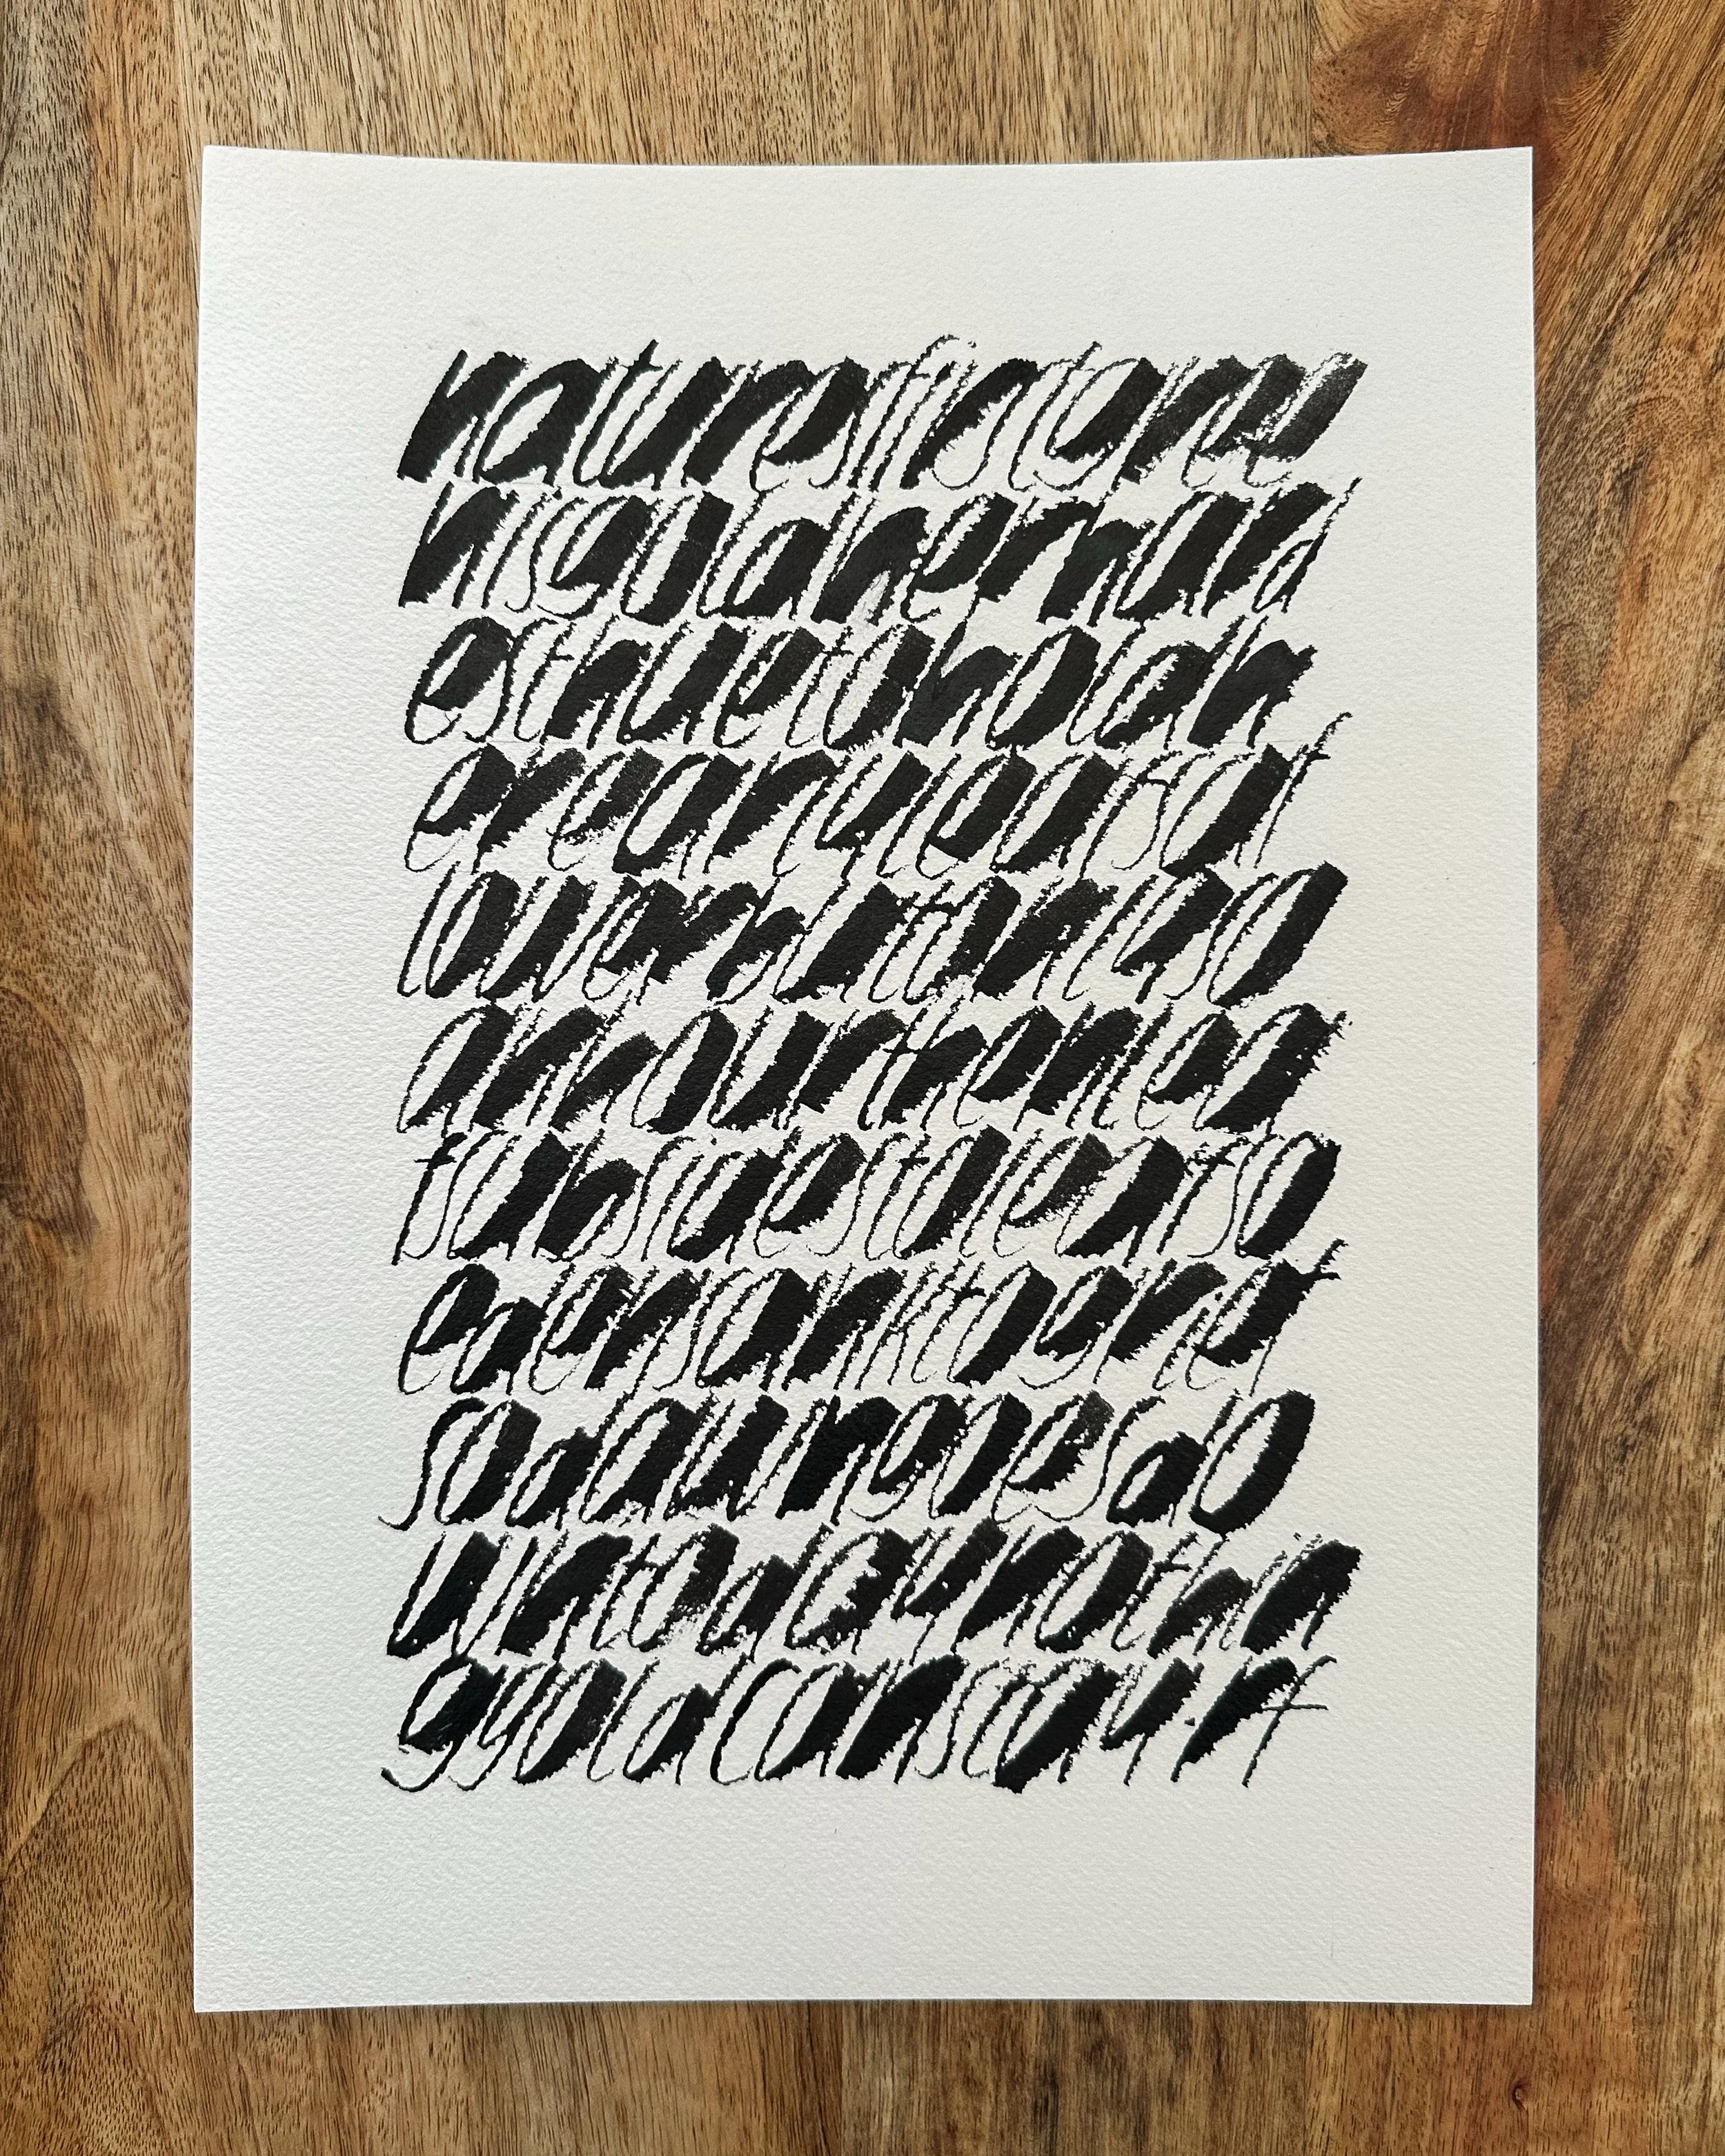 naturesfirstgree
nisgoldherhard
esthuetoholdh
erearlyleafsaf
lowerbutonlyso
anhourthenlea
fsubsidestoleafso
edensanktogrief
sodawngoesdo
wntodaynothin
ggoldcanstay.rf